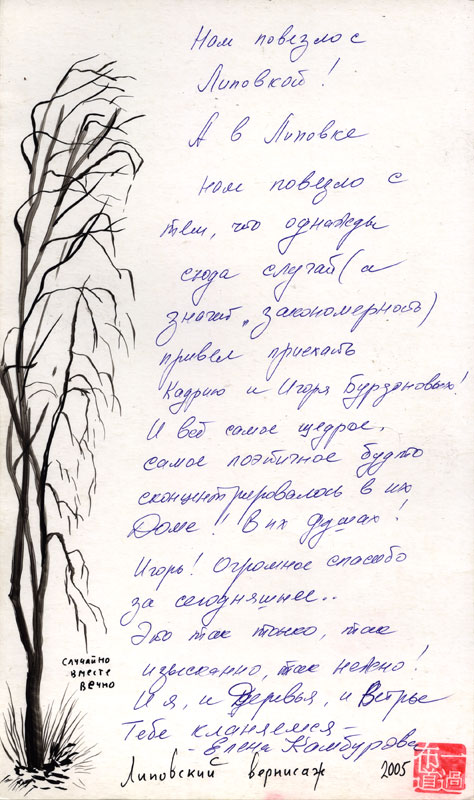 Нам повезло с
Липовкой!
А в Липовке
нам повезло с
тем, что однажды
сюда случай (а
значит, закономерность)
привёл
Кадрию и Игоря Бурдоновых!
И всё самое щедрое,
самое поэтичное будто
сконцентрировалось в их
Доме! В их душах!
Игорь! Огромное спасибо
за сегодняшнее..
Это так тонко, так
изысканно, так нежно!
И я, и Деревья, и Ветры
Тебе кланяемся –
– Елена Камбурова
случайно
вместе
вечно
Липовский вернисаж 2005